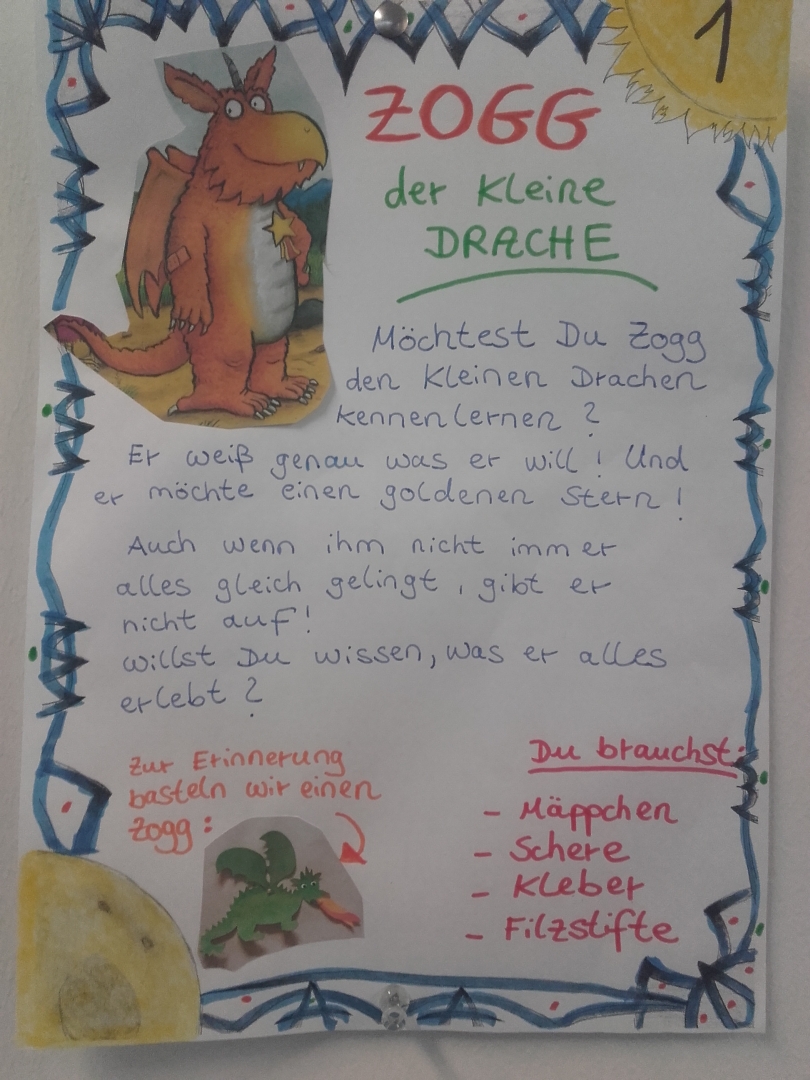 1
ZOGG
der kleine
DRACHE
Möchtest Du Zogg
den kleinen Drachen
kennenlernen ?
Er weiß genau was er will ! Und
er möchte einen goldenen Stern !
Auch wenn ihm nicht immer
alles gleich gelingt, gibt er
nicht auf !
willst Du wissen, was er alles
erlebt ?
Zur Erinnerung
basteln wir einen
Zogg :
Du brauchst:
- Mäppchen
- Schere
- Kleber
- Filzstifte